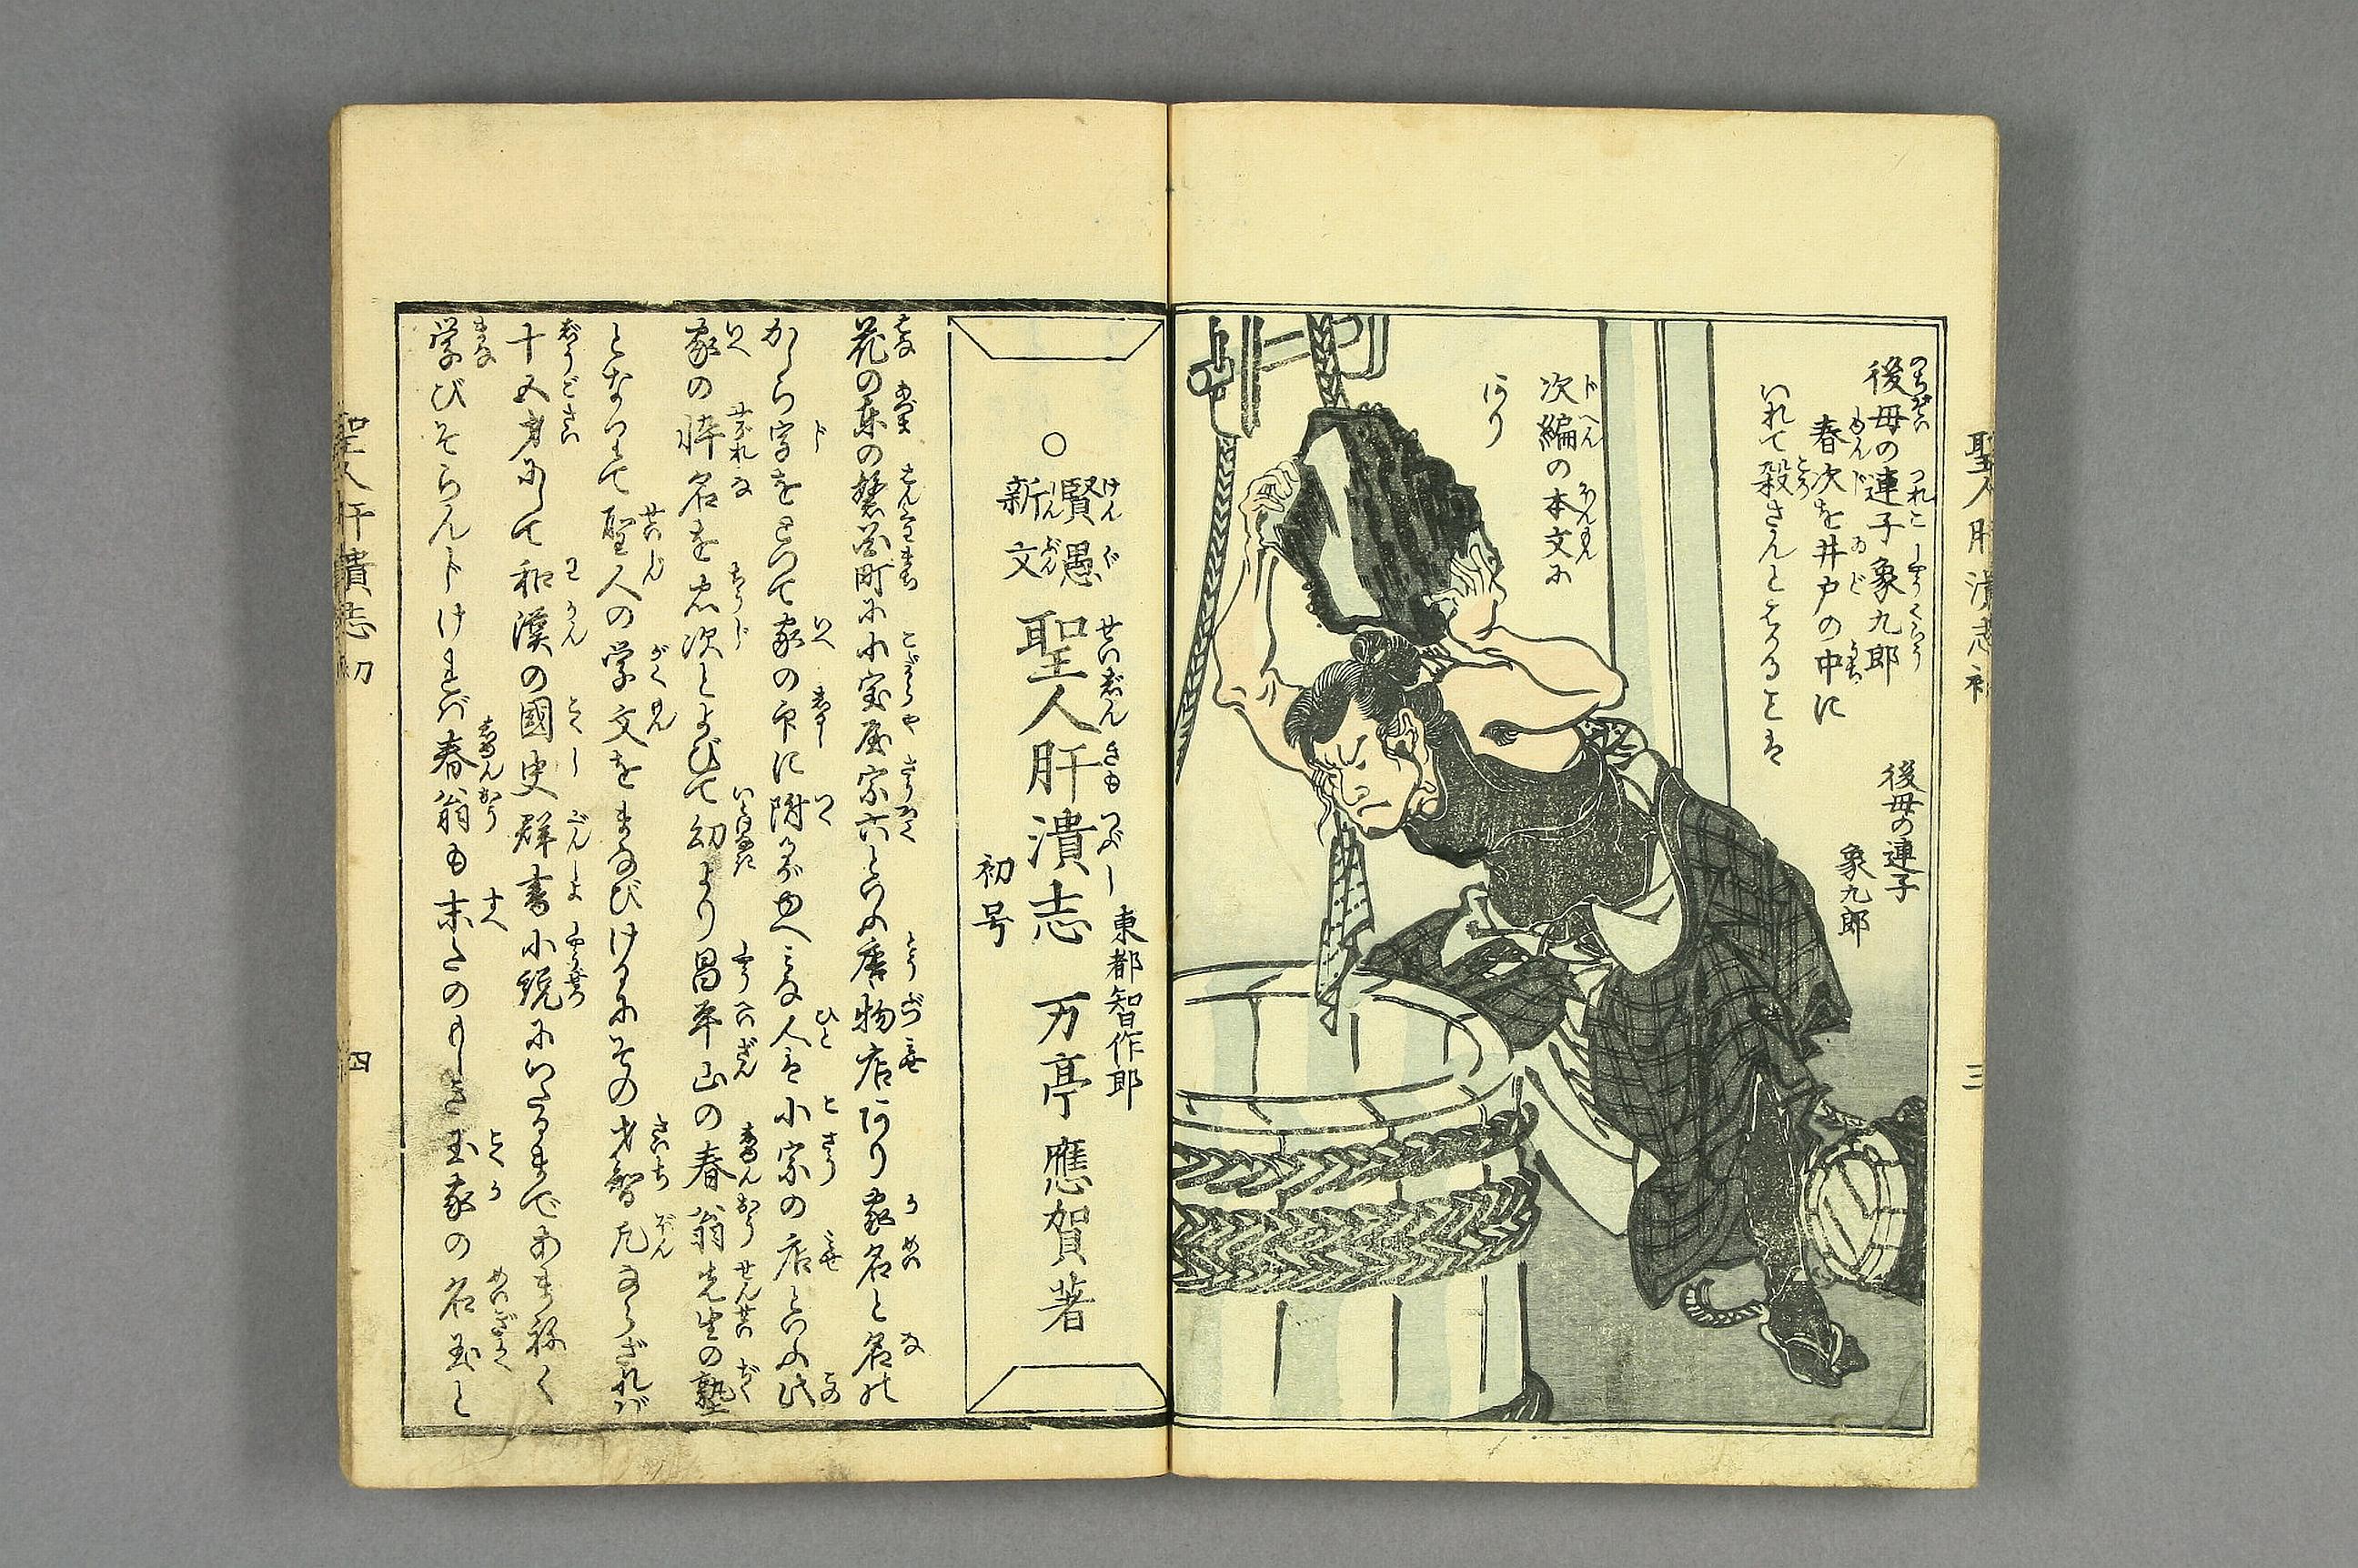 聖人肝潰志初
三
後母の連子象九郎
春次を井戸の中に
いれて殺さんとするとこは
次編の本文に
あり
後母の連子
象九郎
東都智作郎
○賢愚新文 聖人肝潰志 万亭應賀著
初号
花の東の磐石町に小宝屋宗六といふ唐物店あり家名と名の
かしら字をとつて家の印に附るがゆへみな人は小宗の店といふ此
家の忰名を忠次とよびて幼より昌平山の春翁先生の塾
となつて聖人の学文をまなびけるにその才智凡ならざれば
十五才にして和漢の國史群書小説にいたるまであまねく
学びそらんじければ春翁も末たのもしき玉家の名玉と
聖人肝潰志初
四